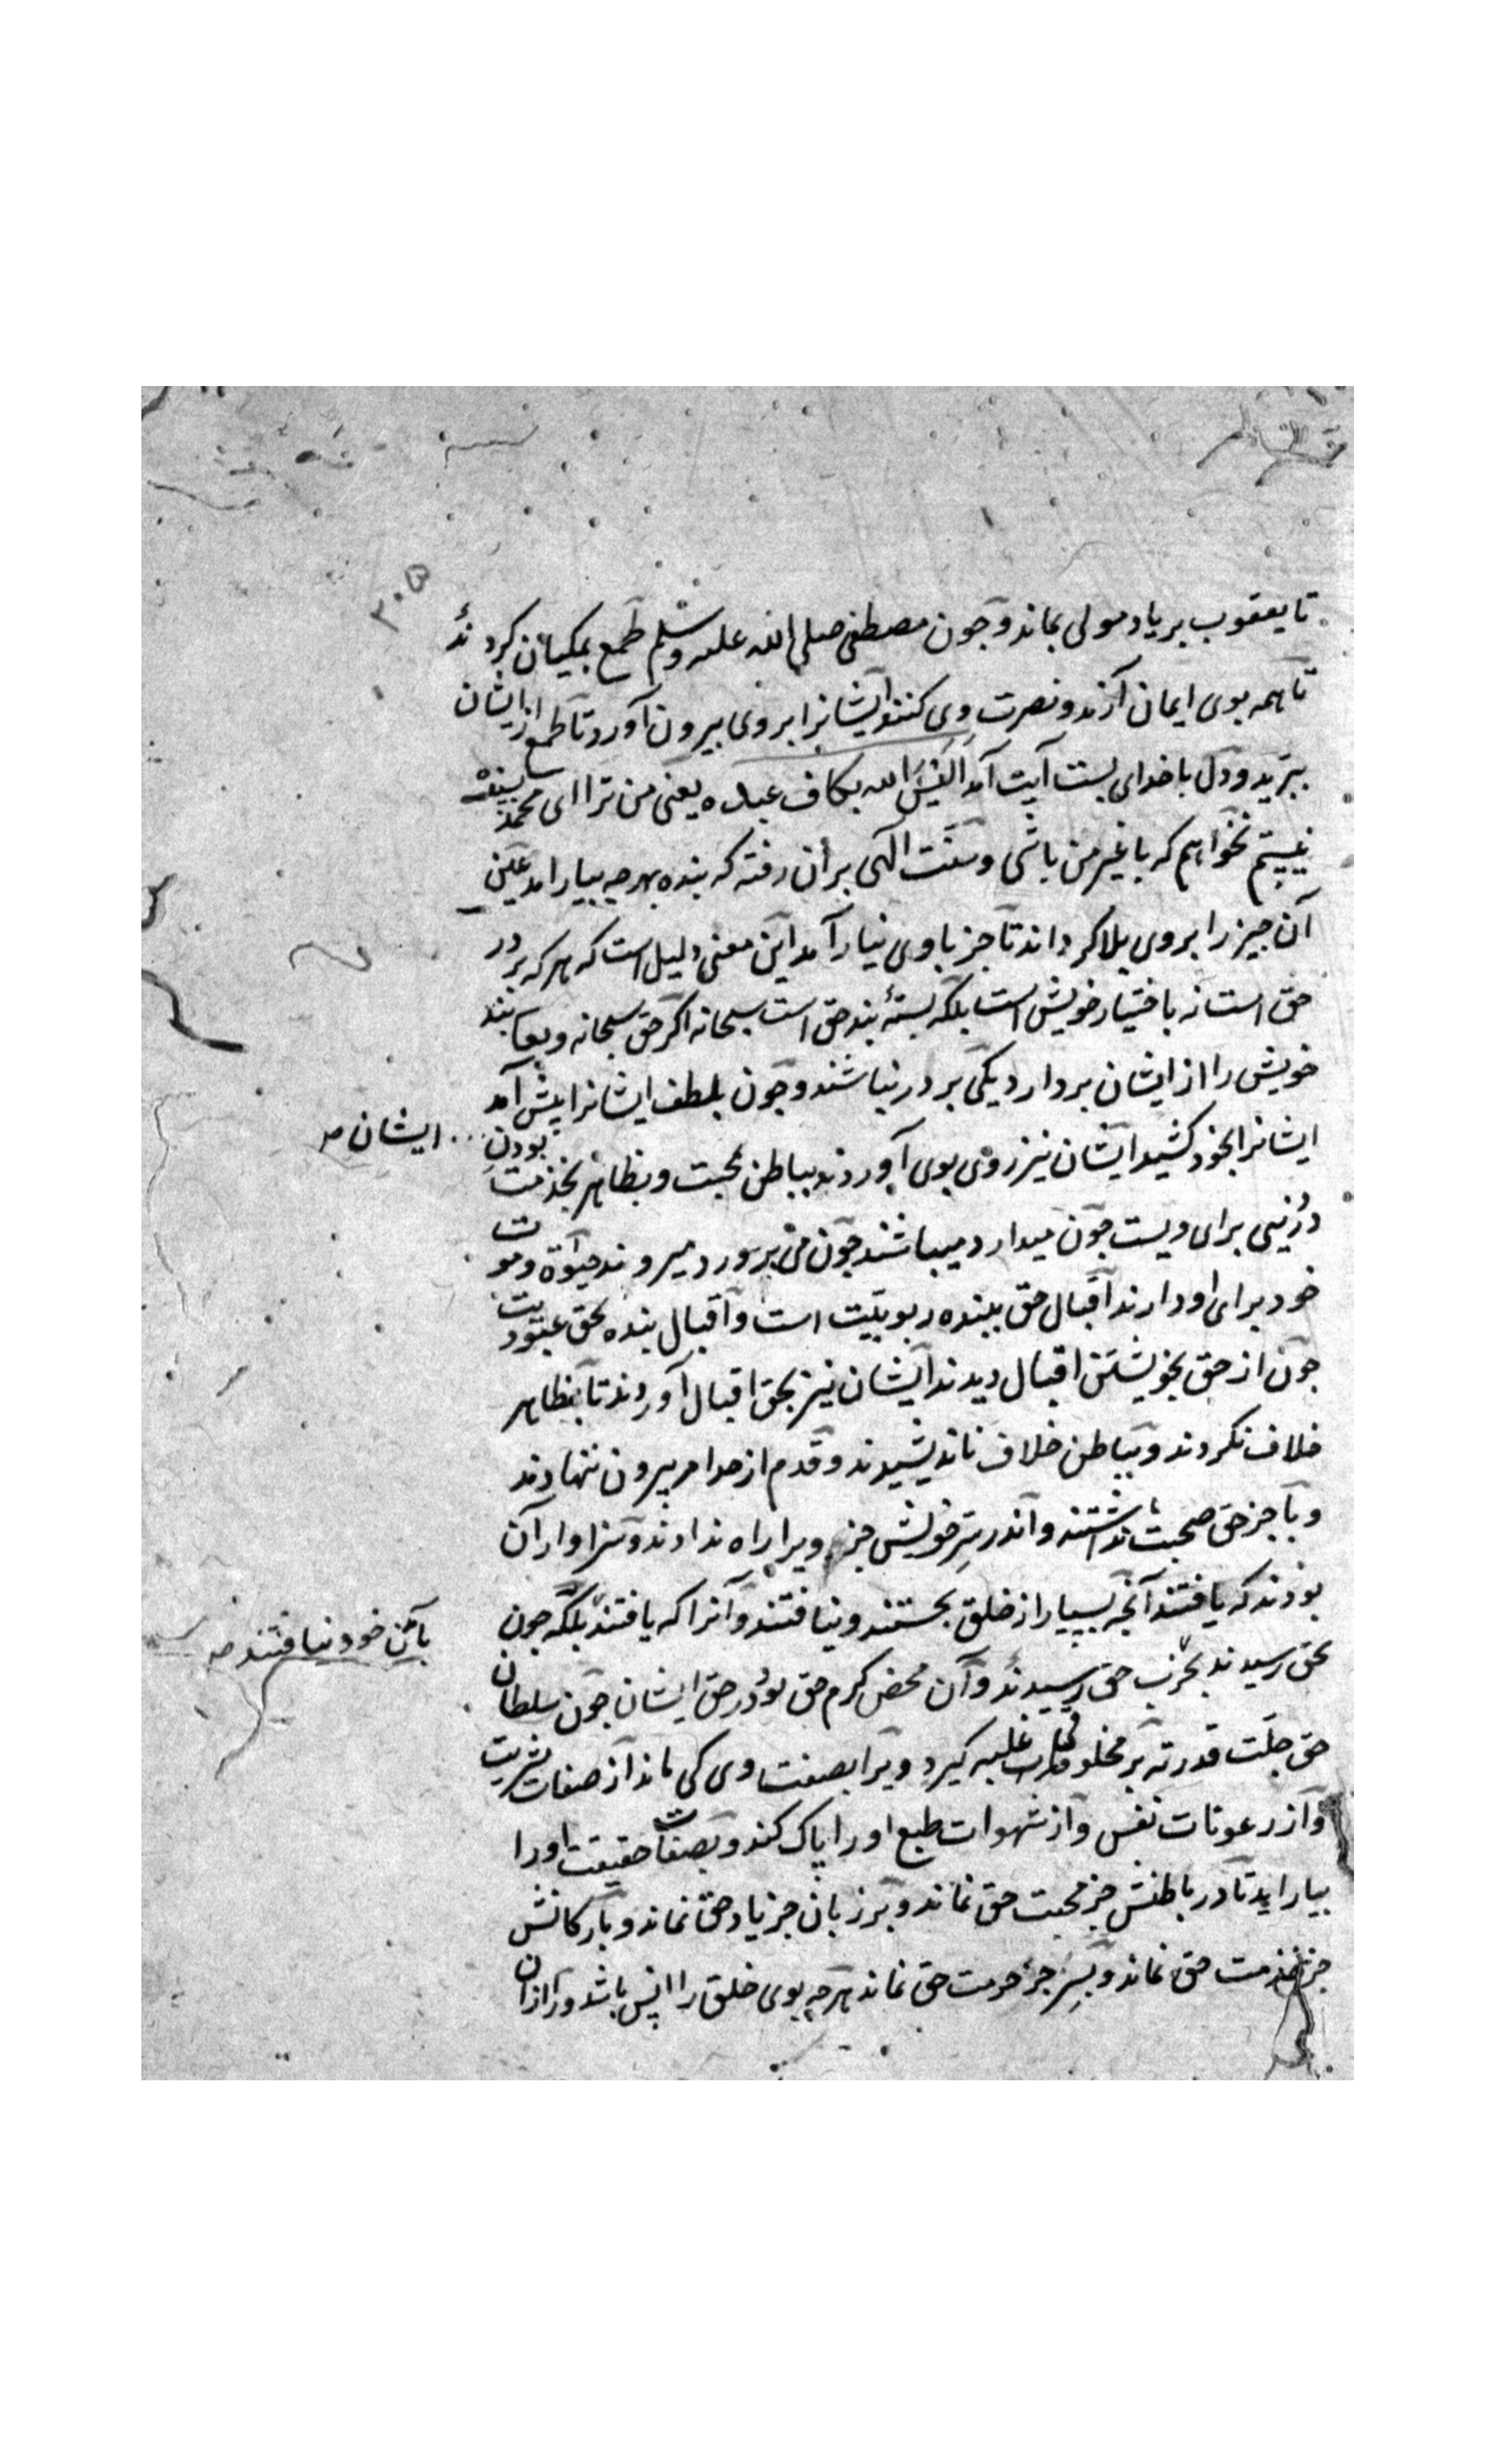 ۳۰۵
تا یعقوب بر یاد مولی بماند و چون مصطفی صلی الله علیه وسلم طمع بمکیان کردند
تا همه بوی ایمان آرند و نصرت وی کنند ایشانرا بروی بیرون آورد تا طمع از ایشان
ببرید و دل با خدای بست آیت آمد الیس الله بکاف عبده یعنی من ترا ای محمد بسنده
نیستم نخواهم که با غیر من باشی و سنت الهی بر آن رفته که بنده بهرچه بیارامد عین
آن چیز را بروی بلا گرداند تا جز با وی نیارآمد این معنی دلیل است که هر که بر در
حق است نه باختیار خویش است بلکه بستهٔ بند حق است سبحانه اگر حق سبحانه وتعا بند
خویش را از ایشان بردارد یکی بر در نباشند و چون بلطف ایشانرا پیش آمد
ایشانرا بخود کشید ایشان نیز روی بوی آوردند بباطن بمحبت و بظاهر بخذمت بودن
ایشان صد
در نیی برای ویست چون میدارد میباشند چون می برورد میروند حیوة و موت
خود برای او دارند اقبال حق ببنده ربوبیت است و اقبال بنده بحق عبودیت
چون از حق بخویشتن اقبال دیدند ایشان نیز بحق اقبال آوردند تا بظاهر
خلاف نکردند و بباطن خلاف ناندیشیدند و قدم از حد امر بیرون ننهادند
و با جز حق صحبت نداشتند و اندر سر خویش جز ویرا راه ندادند و سزاوار آن
بودند که یافتند آنچه بسیار از خلق بجستند و نیافتند و آنرا که یافتند بلکه چون
با تن خود نیافتند صه
بحق رسیدند بحق رسیدند و آن محض کرم حق بود در حق ایشان چون سلطان
حق جلت قدرته بر مخلوقات غلبه گیرد ویرا بصفت وی کی ماند از صفات بشریت
و از رعونات نفس و از شهوات طبع او را پاک کند و بصفات حقیقت او را
بیاراید تا در باطنش جز محبت حق نماند و بر زبان جز یاد حق نماند و بارکانش
جز خذمت حق نماند و بسر جز حرمت حق نماند هرچه بوی خلق را انس باشد ورا از ان